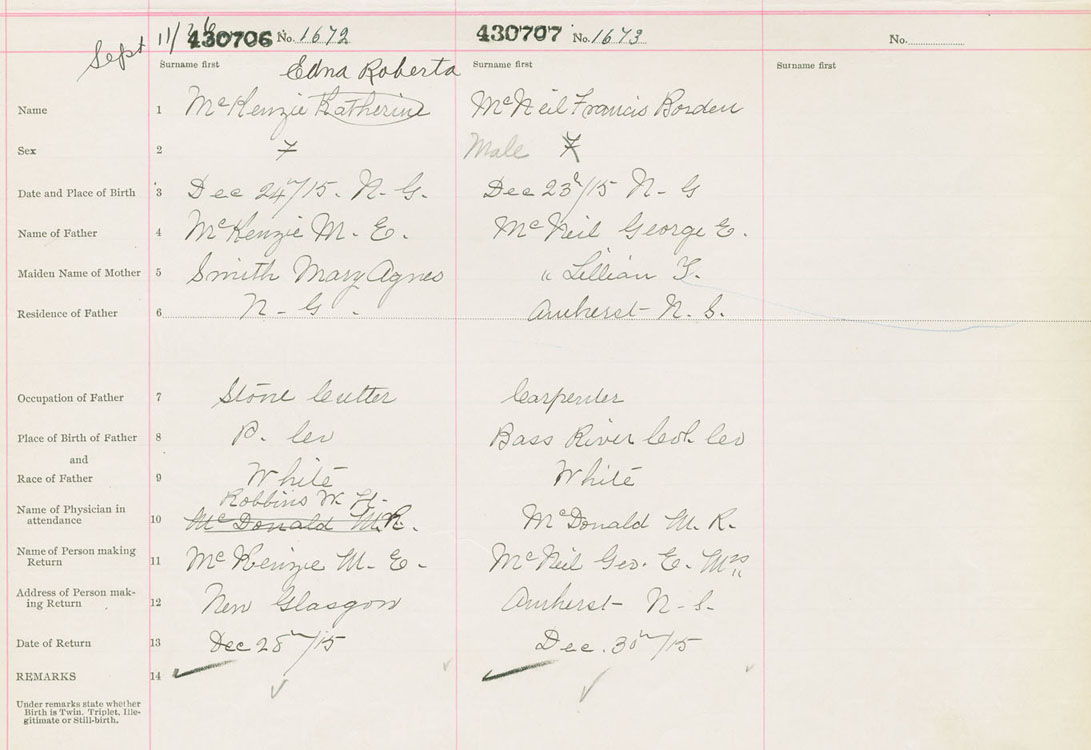 Sept 11/36 430706 No. 1672 430707 No. 1673 No.
Surname first Edna Roberta Surname first Surname first
Name 1 McKenzie Katherine McNeil Francis Borden
Sex 2 F Male F
Date and Place of Birth 3 Dec 24th/15. N. G. Dec 23d/15 N. G
Name of Father 4 McKenzie M. E. McNeil George E.
Maiden Name of Mother 5 Smith Mary Agnes " Lillian F.
Residence of Father 6 N. G. Amherst N. S.
Occupation of Father 7 Stone Cutter Carpenter
Place of Birth of Father 8 P. Co Bass River Col. Co
and
Race of Father 9 White White
Robbins W. H.
Name of Physician in attendance 10 McDonald M. R. McDonald M. R.
Name of Person making Return 11 McKenzie M. E. McNeil Geo. E. Mrs
Address of Person making Return 12 New Glasgow Amherst N. S.
Date of Return 13 Dec 28th/15 Dec. 30th/15
REMARKS 14
Under remarks state whether
Birth is Twin. Triplet, Ille-
gitimate or Still-birth.